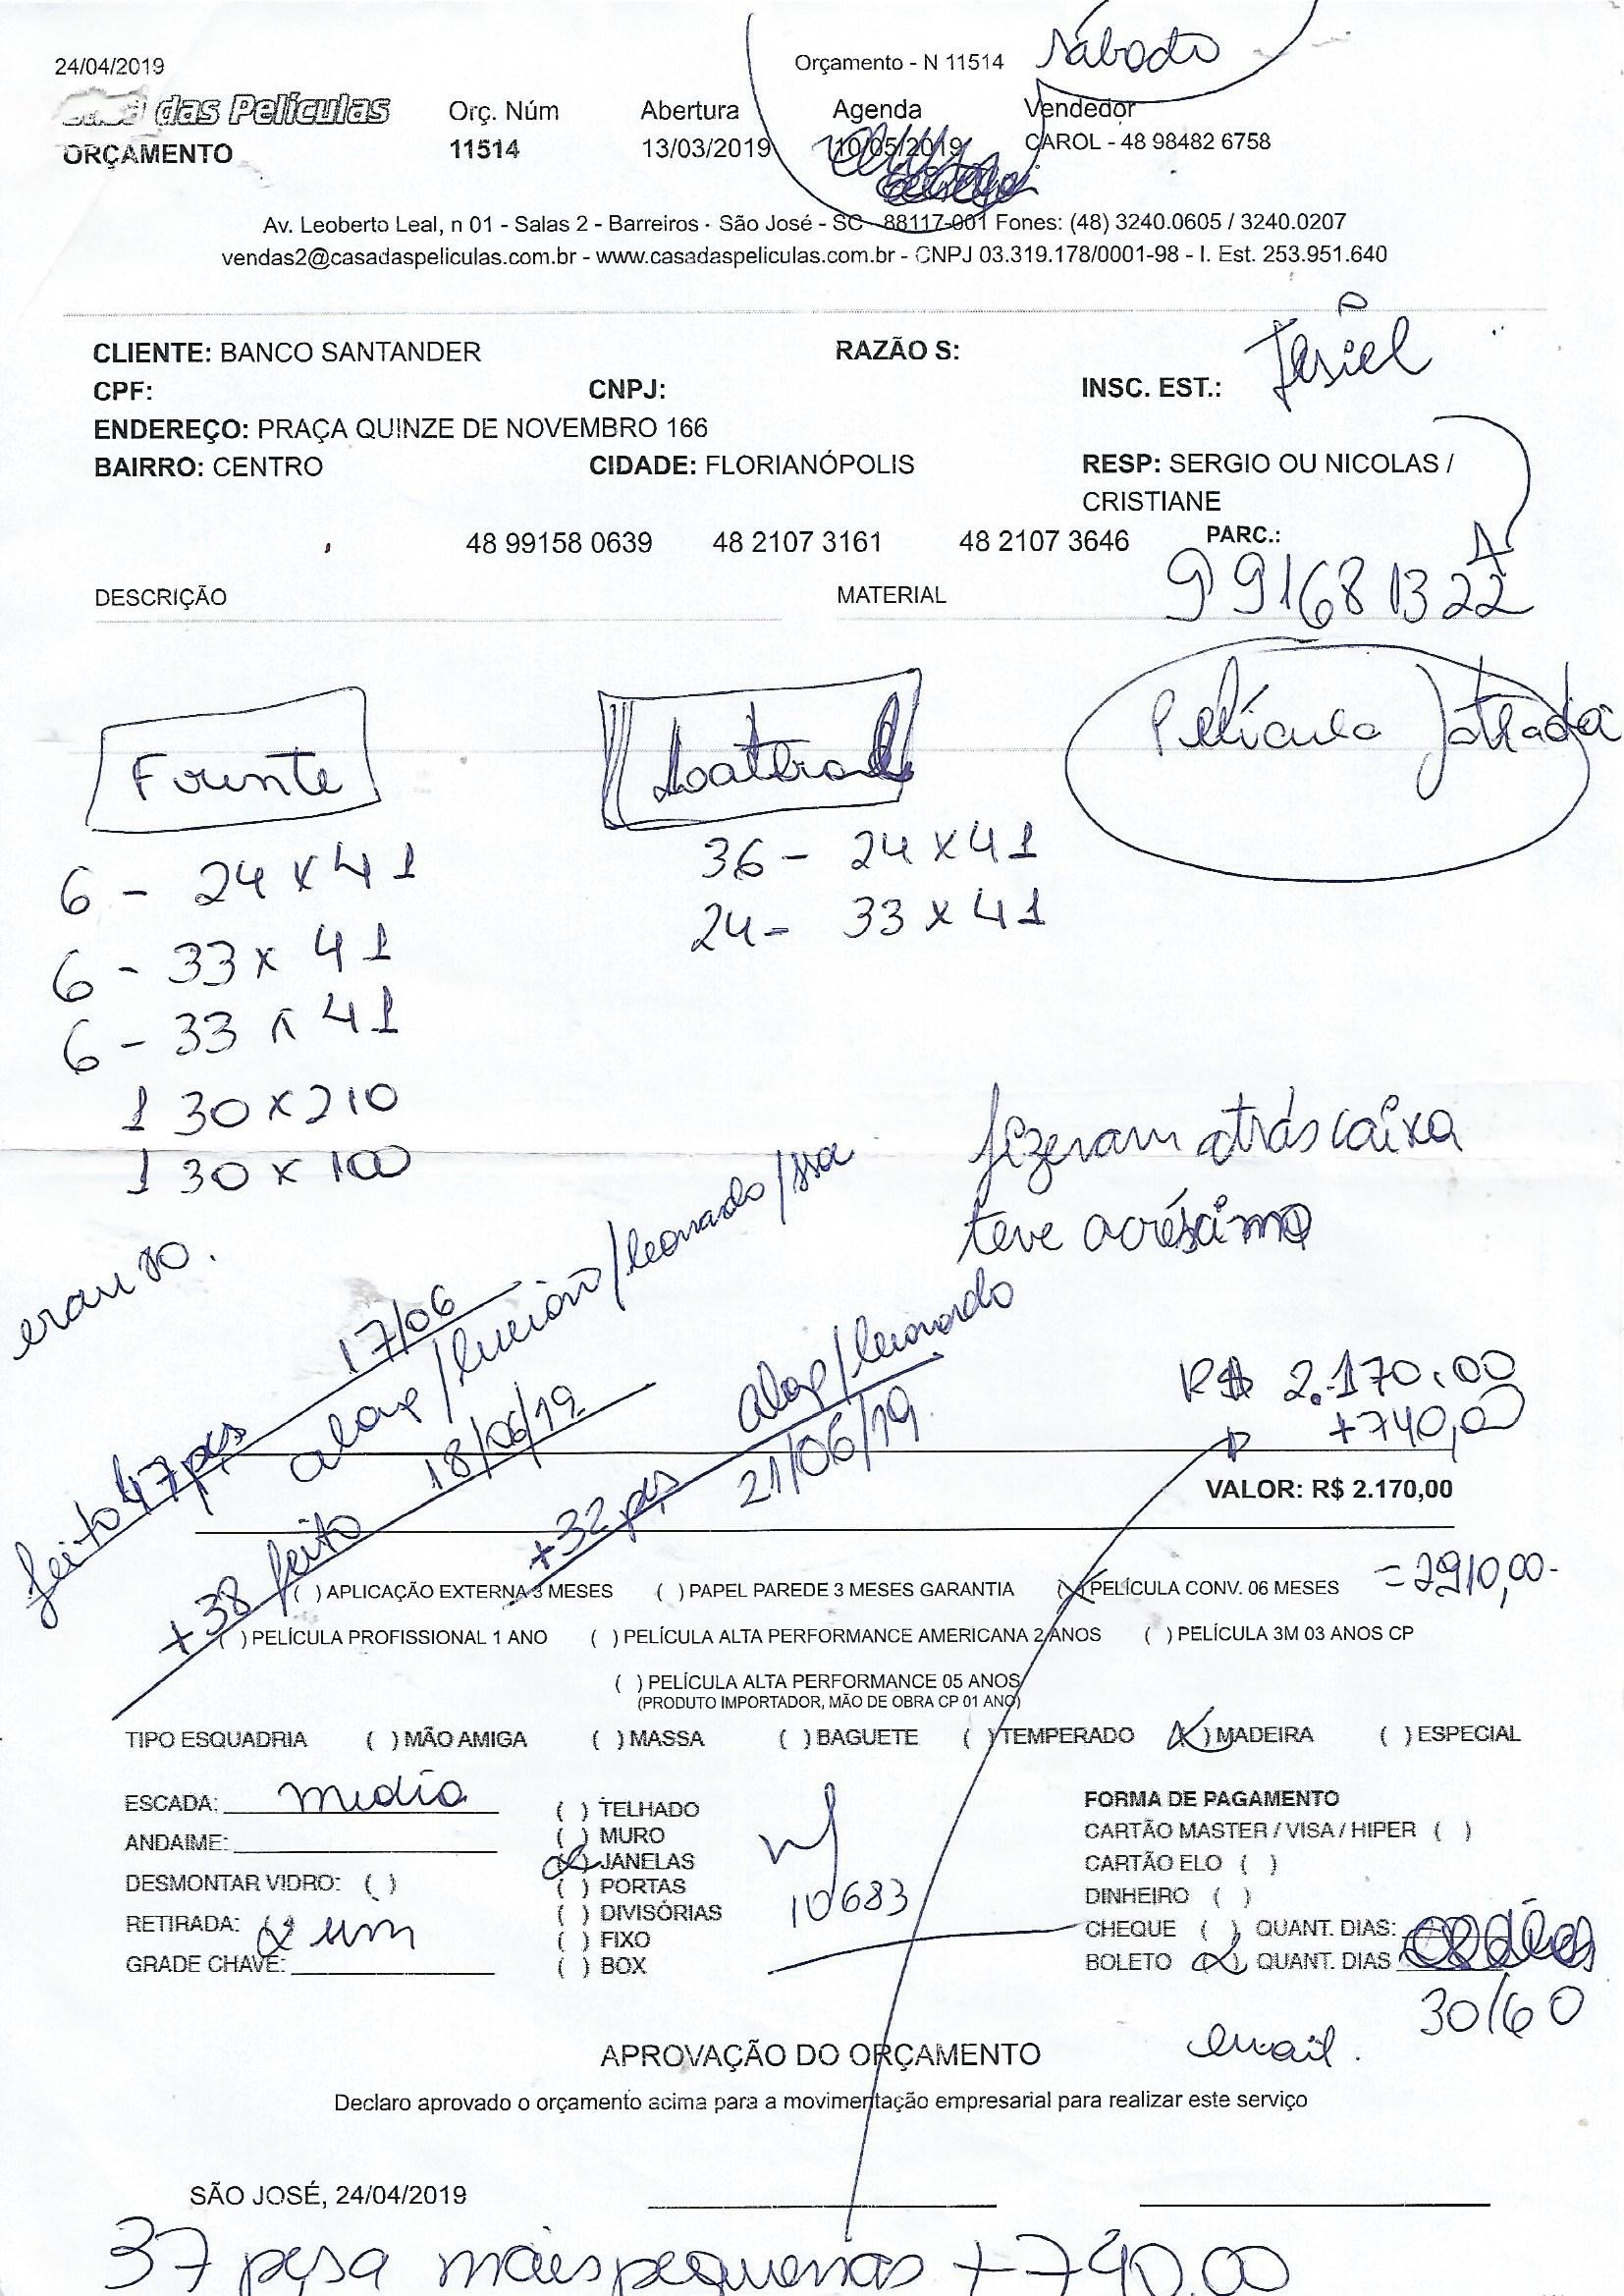 24/04/2019
Orçamento - N 11514
sábado
das Películas
Orç. Núm
Abertura
Agenda
Vendedor
ORÇAMENTO
11514
13/03/2019
10/05/2019
CAROL - 48 98482 6758
Av. Leoberto Leal, n 01 - Salas 2 - Barreiros - São José - SC - 88117-001 Fones: (48) 3240.0605 / 3240.0207
vendas2@casadaspeliculas.com.br - www.casadaspeliculas.com.br - CNPJ 03.319.178/0001-98 - I. Est. 253.951.640
CLIENTE: BANCO SANTANDER
RAZÃO S:
Jesiel
CPF:
CNPJ:
INSC. EST.:
ENDEREÇO: PRAÇA QUINZE DE NOVEMBRO 166
BAIRRO: CENTRO
CIDADE: FLORIANÓPOLIS
RESP: SERGIO OU NICOLAS /
CRISTIANE
48 99158 0639
48 2107 3161
48 2107 3646
PARC.:
991681322
DESCRIÇÃO
MATERIAL
Frente
Lateral
Película Jateada
6 - 24 x 41
6 - 33 x 41
6 - 33 x 41
1 30 x 210
1 30 x 100
36 - 24 x 41
24 - 33 x 41
fizeram atrás caixa
teve acréscimo
eram 80.
feito 47 pçs 17/06
/luciano/leonardo/
+38 feito 18/06/19
/leonardo
+32 pçs 21/06/19
R$ 2.170,00
+740,00
VALOR: R$ 2.170,00
=2910,00-
( ) APLICAÇÃO EXTERNA 3 MESES
( ) PAPEL PAREDE 3 MESES GARANTIA
(X) PELÍCULA CONV. 06 MESES
( ) PELÍCULA PROFISSIONAL 1 ANO
( ) PELÍCULA ALTA PERFORMANCE AMERICANA 2 ANOS
( ) PELÍCULA 3M 03 ANOS CP
( ) PELÍCULA ALTA PERFORMANCE 05 ANOS
(PRODUTO IMPORTADOR, MÃO DE OBRA CP 01 ANO)
TIPO ESQUADRIA ( ) MÃO AMIGA ( ) MASSA ( ) BAGUETE ( ) TEMPERADO (X) MADEIRA ( ) ESPECIAL
ESCADA: media
ANDAIME:
DESMONTAR VIDRO: ( )
RETIRADA: (X) sim
GRADE CHAVE:
( ) TELHADO
( ) MURO
(X) JANELAS
( ) PORTAS
( ) DIVISÓRIAS
( ) FIXO
( ) BOX
nf
10683
FORMA DE PAGAMENTO
CARTÃO MASTER / VISA / HIPER ( )
CARTÃO ELO ( )
DINHEIRO ( )
CHEQUE ( ) QUANT. DIAS:
BOLETO (X) QUANT. DIAS
30/60
email.
APROVAÇÃO DO ORÇAMENTO
Declaro aprovado o orçamento acima para a movimentação empresarial para realizar este serviço
SÃO JOSÉ, 24/04/2019
37 pesa mais pequenas +740,00